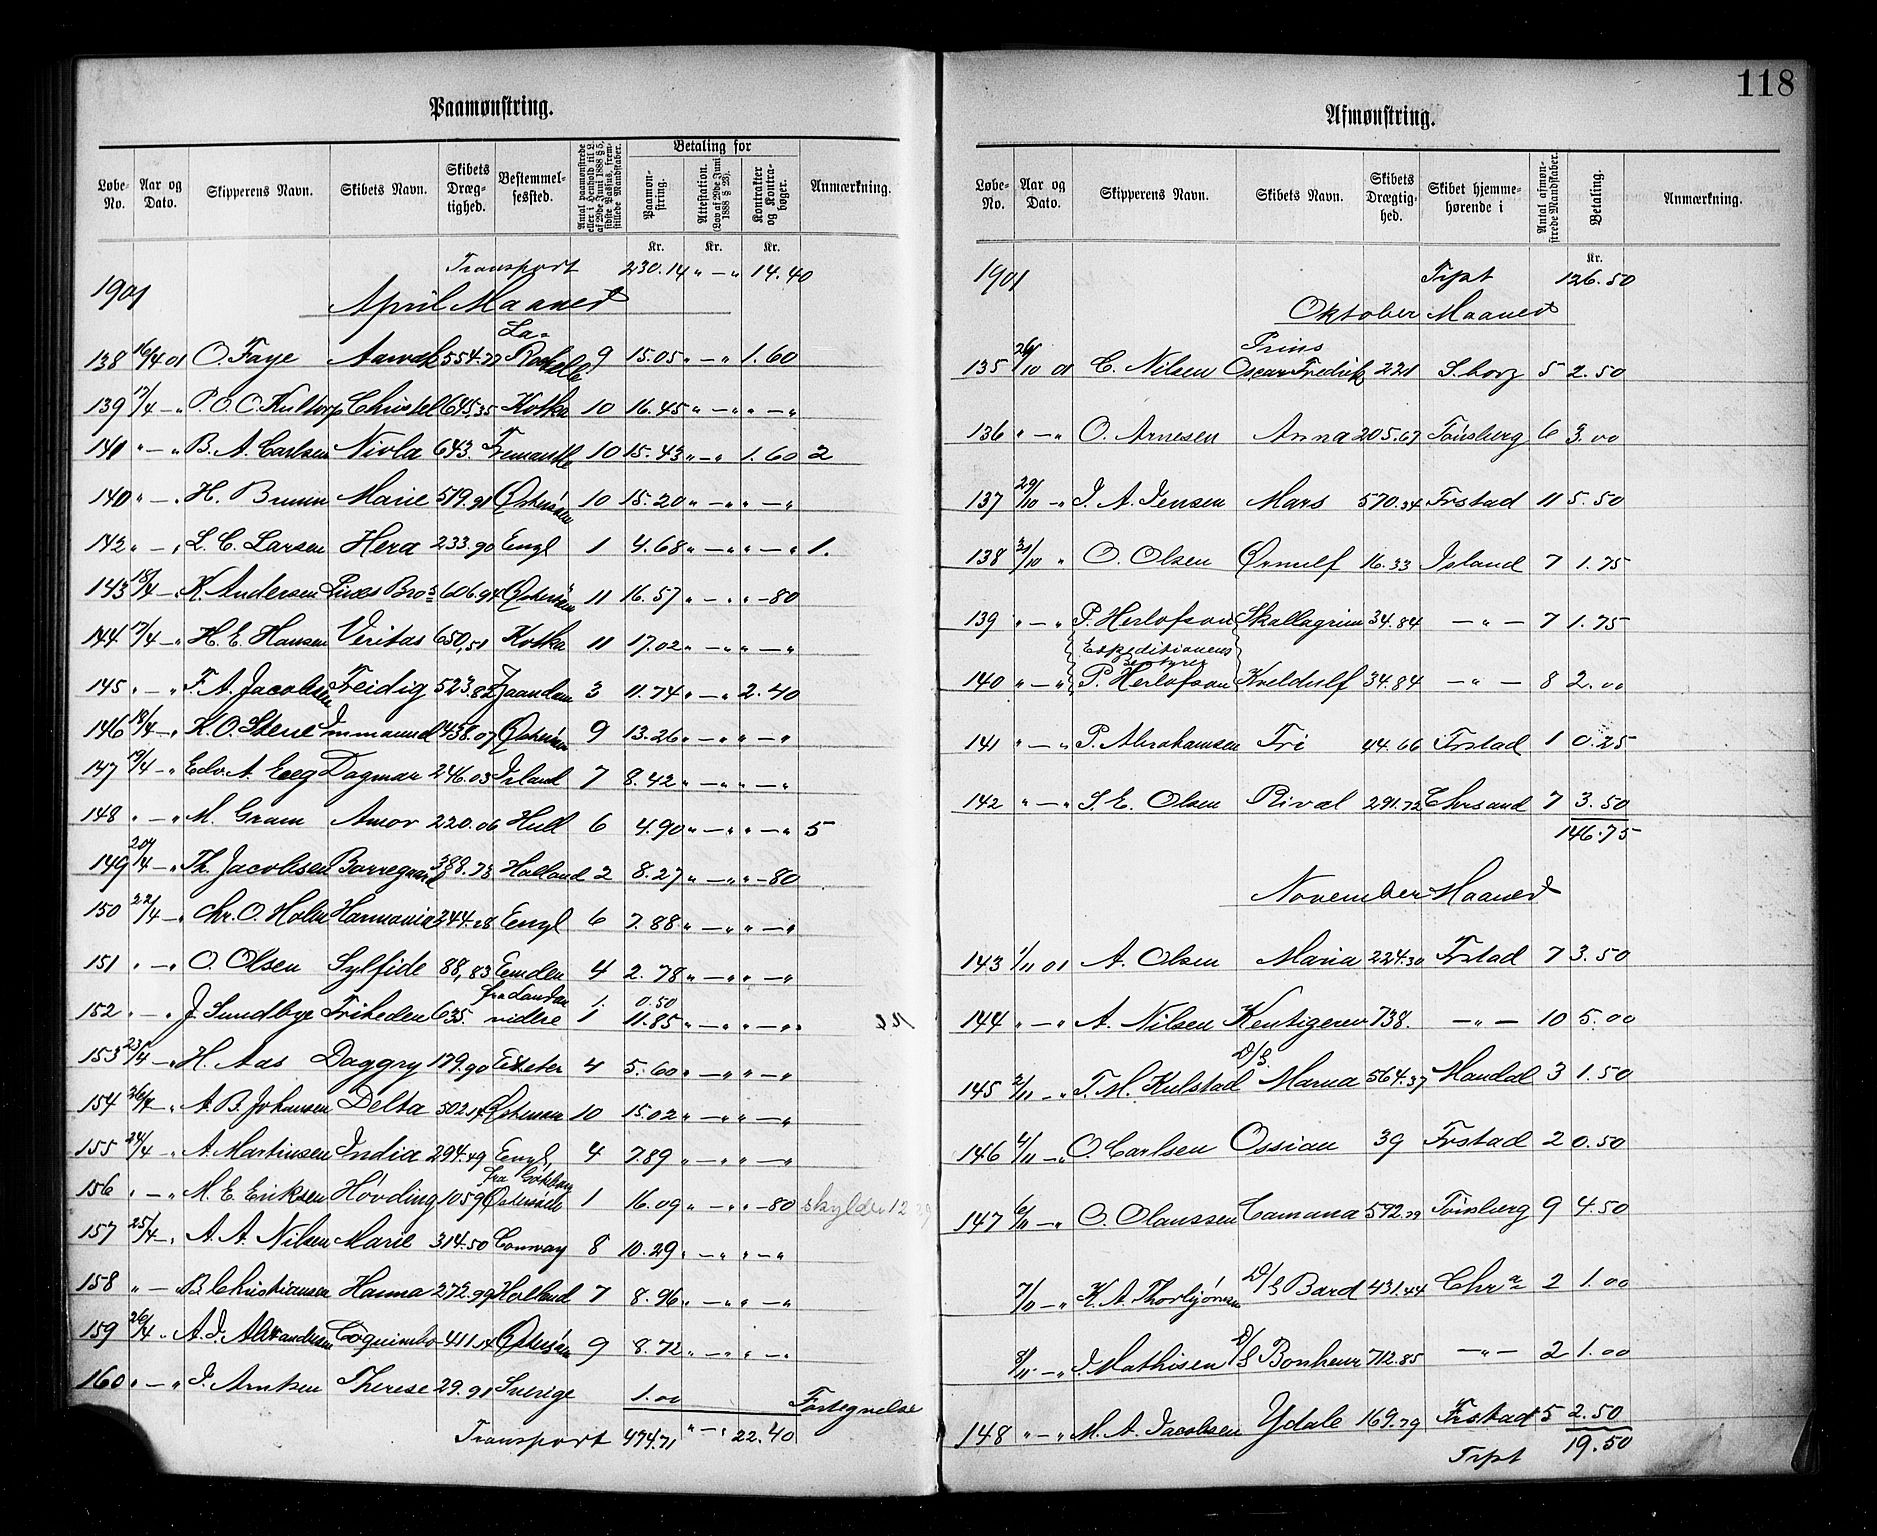 118
Paamønstring.
Løbe-No. Aar og Dato. Skipperens Navn. Skibets Navn. Skibets Dræg-tighed. Bestemmel-sessted. Antal paamønstrede eller i Henhold til L. af 29de Juni 1888 § 5, sidste Passus, frem-stillede Mandstaber. Betaling for Paamøn-string. Attestation. (Lov af 29de Juni 1888 § 28). Kontrakter og Kontra-bøger. Anmærkning.
Kr. Kr. Kr.
Transport 230.14 " — " 14.40
1901
April Maaned
138 16/4 01 O. Faye Aarvak 554.77 La Rochelle 9 15.05 " — " 1.60
139 17/4 — " P. O. C. Kultorp Christel 645,35 Kotka 10 16.45 " — " " — "
141 " — " B. A. Carlsen Niola 643. Fremantle 10 15.43 " — " 1.60 2
140 " — " H. Bruun Marie 519.91 Østersøen 10 15.20 " — " " — "
142 " — " L. C. Larsen Hera 233.90 Engl 1 4.68 " — " " — " 1.
143 18/4 — " K. Andersen Lines Bros 606.94 Østersøen 11 16.57 " — " " — 80
144 17/4 — " H. E. Hansen Veritas 650,51 Kotka 11 17.02 " — " " — "
145 " — " F. A. Jacobsen Freidig 523.82 Zaandam 3 11.74 " — " 2.40
146 18/4 — " K. O. Stene Immanuel 438.07 Østersøen 9 13.26 " — " " — "
147 19/4 — " Edv. A. Eeg Dagmar 246.03 Irland 7 8.42 " — " " — "
148 " — " M. Gram Amor 220.06 Hull 6 4.90 " — " " — " 5
149 20/4 — " Th. Jacobsen Borregaard 388.73 Holland 2 8.27 " — " " — 80
150 22/4 — " Chr. O. Holm Harmonia 244.28 Engl 6 7.88 " — " " — "
151 " — " O. Olsen Sylfide 88,83 Emden 4 2.78 " — " " — "
152 " — " J. Sundbye Friheden 635. fra London videre 1. 1 0.50 11.85 " — " " — "
153 23/4 — " H. Aas Daggry 179.90 Exeter 4 5.60 " — " " — "
154 26/4 — " A. B. Johansen Delta 502.14 Østersøen 10 15.02 " — " " — "
155 24/4 — " A. Martinsen India 294.49 Engl 4 7.89 " — " " — "
156 " — " M. E. Eriksen Høvding 1059 fra Østersøen 1 16.09 " — " " — 80 skylder 12
157 25/4 — " A. A. Nilsen Marie 314.50 Conway 8 10.29 " — " " — "
158 " — " B. Christiansen Hanna 272.99 Holland 7 8.96 " — " " — "
159 26/4 — " A. J. Alexandersen Coquimbo 411.14 Østersøen 9 8.72 " — " " — "
160 " — " J. Arntzen Therese 29.91 Sverige 1.00 Fortegnelse
Transport 474.71 " — " 22.40
Afmønstring.
Løbe-No. Aar og Dato. Skipperens Navn. Skibets Navn. Skibets Drægtig-hed. Skibet hjemme-hørende i Antal afmøn-strede Mandstaber. Betaling. Anmærkning.
Kr.
1901 Trpt 126.50
Oktober Maaned
135 26/10 01 C. Nilsen Prins Oscar Fredrik 221 S.borg 5 2.50
136 " — " O. Arnesen Anna 205.67 Tönsberg 6 3.00
137 29/10 — " J. A. Jensen Mars 570.34 Frstad 11 5.50
138 31/10 " O. Olsen Ørnulf 16.33 Island 7 1.75
139 " — " P. Herlofson Skallagrim 34.84 — " — 7 1.75
Expeditionens Bestyrer
140 " — " P. Herlofson Kveldulf 34.84 — " — 8 2.00
141 " — " P. Abrahamsen Fri 44.66 Frstad 1 0.25
142 " — " S. E. Olsen Rival 291.72 Chrsand 7 3.50
146.75
November Maaned
143 1/11 01 A. Olsen Maria 224.30 Frstad 7 3.50
144 " — " A. Nilsen Kentigern 738. — " — 10 5.00
145 2/11 — " T. M. Kulstad D/S Marna 564.37 Mandal 3 1.50
146 4/11 — " O Carlsen Ossian 39 Frstad 2 0.50
147 6/11 — " O. Olaussen Camana 592.79 Tönsberg 9 4.50
7/11 — " K. A. Thorbjörnsen D/S Bard 431.44 Chra 2 1.00
8/11 — " J. Mathisen D/S Bonheur 712.85 — " — 2 1.00
148 " — " M. A. Jacobsen Ydale 169.79 Frstad 5 2.50
Trpt 19.50